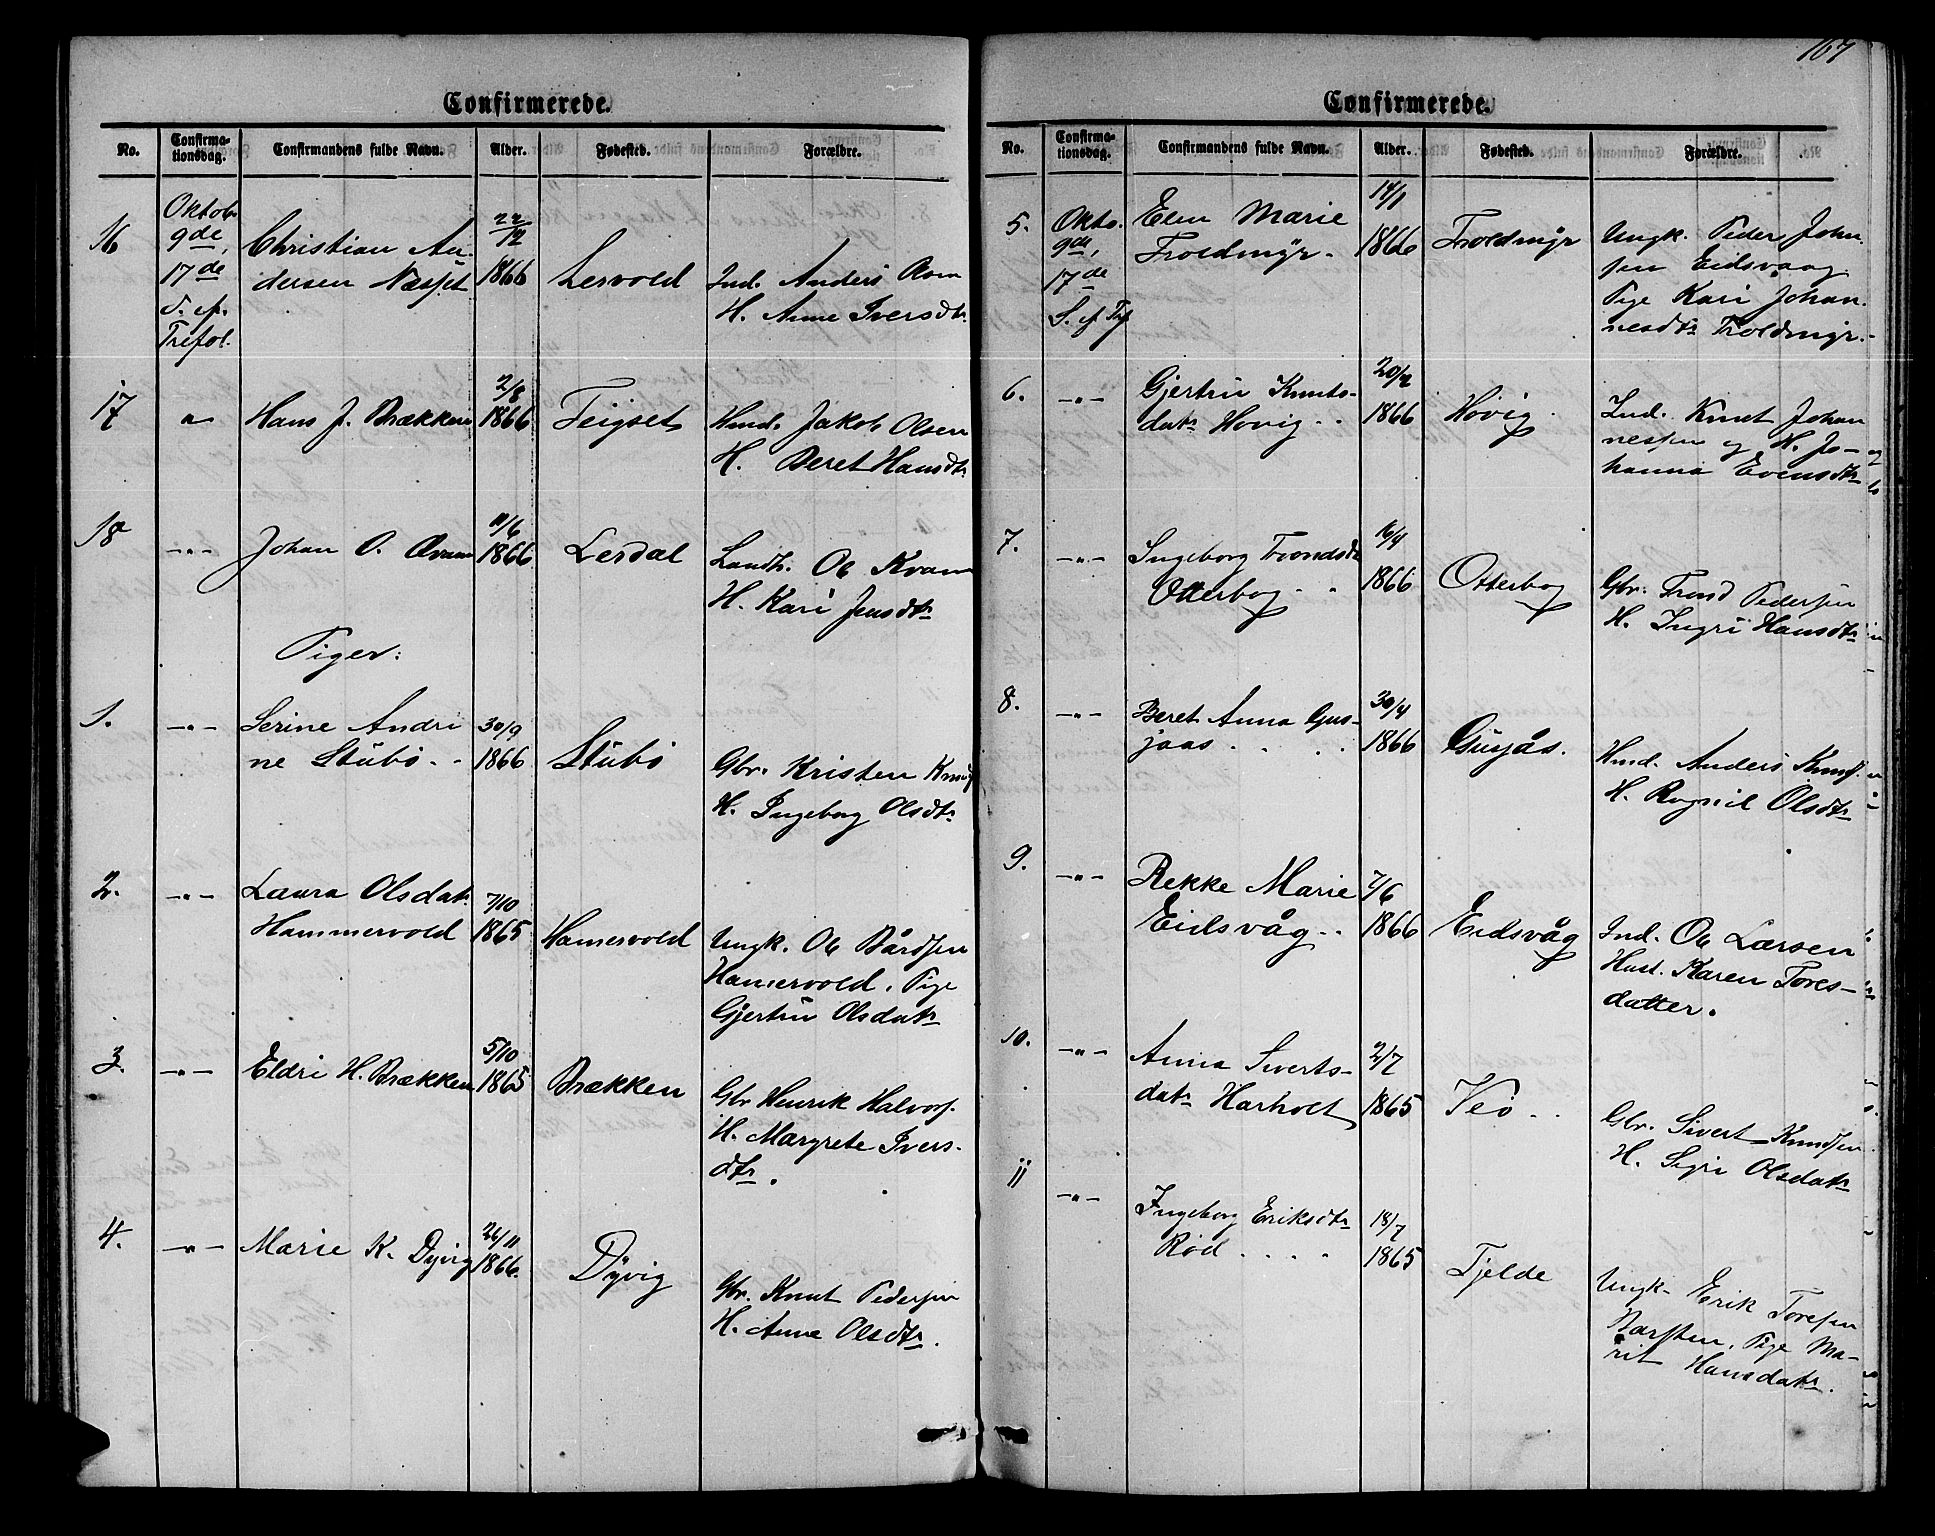 167
Confirmerede.
No. Confirma-tionsdag. Confirmandens fulde Navn. Alder. Fødested. Forældre.
16 Oktob. 9de, 17de S. ef. Trefol. Christian An-
dersen Næsset 22/12 1866 Lervold Ind. Anders
H. Anne Iversdtr
17 " Hans J. Brækken 2/8 1866 Teigset Hmd. Jakob Olsen
H. Beret Hansdtr
18 -"- Johan O. 11/6 1866 Lerdal Landh. Ole Kvam
H. Kari Jensdtr
Piger:
1. -"- Serine Andri
ne Stubø 30/9 1866 Stubø Gbr. Kristen
H. Ingeborg Olsdtr
2. -"- Laura Olsdatr
Hammervold 7/10 1865 Hamervold Ungk. Ole Bårdsen
Hamervold. Pige
Gjertru Olsdatr
3. -"- Eldri H. Brækken 5/10 1865 Brækken Gbr Henrik Halvors.
H. Margrete Ivers-
dtr.
4. -"- Marie K. Dyvig 26/11 1866. Dyvig Gbr. Knut Pedersen
H. Anne Olsdtr.
Confirmerede.
No. Confirma-tionsdag. Confirmandens fulde Navn. Alder. Fødested. Forældre.
5. Okto. 9de, 17de S. ef Tref Elen Marie
Troldmyr 14/1 1866 Troldmyr Ungk. Peder Johan
sen Eidsvaag
Pige Kari Johan
nesdtr Troldmyr.
6. -"- Gjertru Knuts-
datr Hovig 1866 Hovig Ind. Knut Johan
nessen og H. Jo-
hanna Evensdtr
7. -"- Ingeborg Trondsdtr
Otterbog 16/4 1866 Otterbog Gbr. Trond Pedersen
H. Ingri Hansdtr
8. -"- Beret Anna Gus-
jaas 30/4 1866 Gusjås. Hmd. Anders Knuds.
H. Ragnil Olsdtr
9. -"- Rekke Marie
Eidsvåg 7/6 1866 Eidsvåg Ind. Ole Larsen
Hust. Karen Tores-
datter.
10. -"- Anna Siverts-
datr Harholt 2/7 1865 Veø Gbr. Sivert Knudsen
H. Sigri Olsdatr
11 -"- Ingeborg Eriksdtr
Rød 18/7 1865 Tjelde Ungk. Erik Toresen
Pige Ma-
rit Hansdatr.